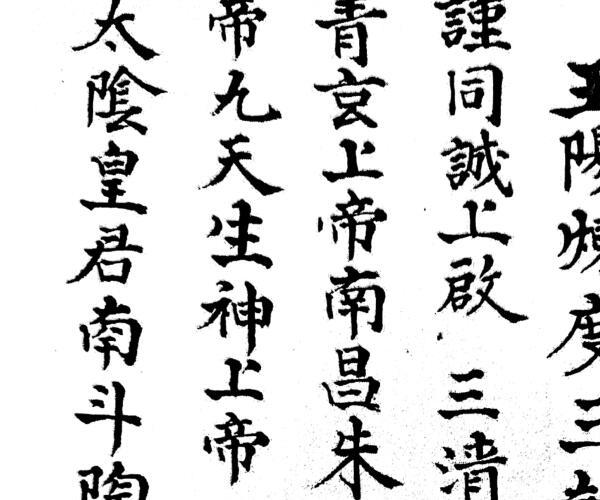 陽煉度三
謹同誠上啟 三清
青玄上帝南昌朱
帝九天生神上帝
太陰皇君南斗陶